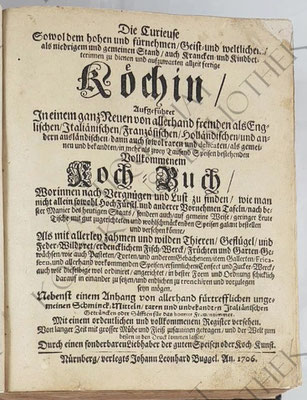 Die Curieuse
Sowol dem hohen und fürnehmen / Geist- und weltlichen /
als niedrigem und gemeinen Stand / auch Krancken und Kindbet-
terinnen zu dienen und aufzuwarten allzeit fertige
Köchin /
Aufgeführet
In einem gantz Neuen von allerhand fremden als Eng-
lischen / Italiänischen / Frantzösischen / Holländischen / und an-
dern ausländischen dann auch sowol raren und delicaten / als gemei-
nen und bekandten / in mehr als zwey Tausend Speisen bestehenden
Vollkommenem
Koch Buch
Worinnen nach Vergnügen und Lust zu finden / wie man
nicht allein sowohl Hochfürstl. und anderer Vornehmen Tafeln / nach be-
ster Manier des heutigen Staats / sondern auch auf gemeine Weise / geringer Leute
Tische mit gut zugerichteten und wohlschmäckenden Speisen galant bestellen
und versehen könne /
Als mit allerley zahmen und wilden Thieren / Geflügel / und
Feder-Wildpret / erdencklichen Fisch-Werck / Früchten und Garten-Ge-
wächsen / wie auch Pasteten / Torten / und anderem Gebackenem / item Gallerten /
und allerhand vorkommenden Speisen
auch wie dieselbige wol ordiniret / angerichtet / in bester Form und Ordnung schicklich
darauf an einander zu setzen / und endlichen zu trenchiren und vorzulegen
seyn mögen.
Nebenst einem Anhang von allerhand fürtrefflichen unge-
meinen Schminck-Mitteln / raren und unbekandten Italiänischen
Mit einem ordentlichen und vollkommenen Register versehen.
Von langer Zeit mit grosser Mühe und Fleiß zusammen getragen / und der Welt zum
besten in den Druck kommen lassen /
Durch einen sonderbaren Liebhaber der guten Speisen oder Koch-Kunst.
Nürnberg / verlegts Johann Leonhard Buggel. An. 1706.